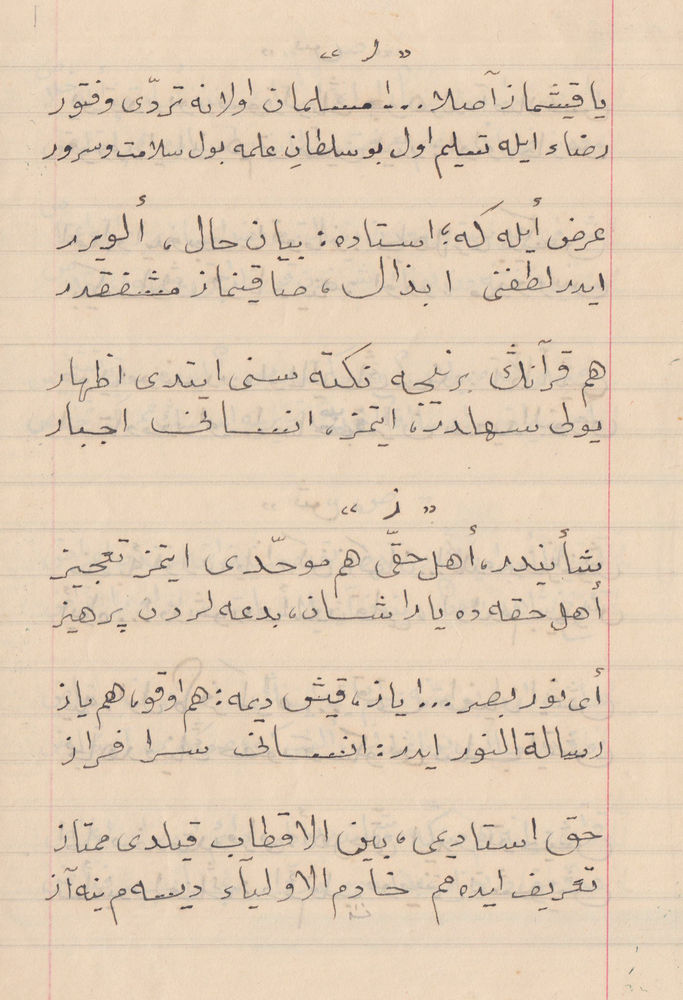 « ر »
ياقيشماز آصلا...! مسلمان اولانه تردّى وفتور
رضاء ايله تسليم اول بو سلطانِ علمه بول سلامت وسرور
عرض أيله كه؛ استاده: بيان حال، ألويرر
ايدر لطفنى ابذال، صاقينماز مشفقدر
هم قرآنڭ برنيجه نكته سنى ايتدى اظهار
يولى سهلدر، ايتمز، انسانى اجبار
« ز »
شأنيندر، أهل حقّى هم موحّدى ايتمز تعجيز
أهل حقه ده ياراشان، بدعه لردن پرهيز
أى نور بصر...! ياز، قيش ديمه: هم اوقو، هم ياز
رسالة النور ايدر: انسانى سرا فراز
حق استاديمى، بين الاقطاب قيلدى ممتاز
تعريف ايده مم خادم الاولياء ديسه م ينه آز